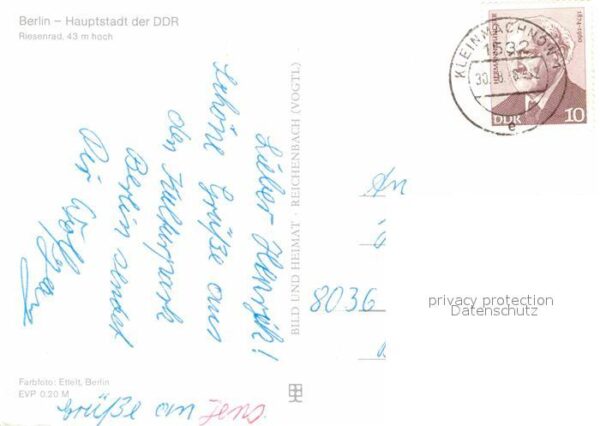 Berlin – Hauptstadt der DDR
Riesenrad, 43 m hoch
Lieber Henryk!
Schöne Grüße aus
den Kulturpark
Berlin sendet
Dir Wolfgang
Farbfoto: Ettelt, Berlin
EVP 0.20 M
Grüße an Jens
BILD UND HEIMAT · REICHENBACH (VOGTL)
KLEINMACHNOW 1
1532
e
1874-1960
DDR 10
An
8036
privacy protection
Datenschutz